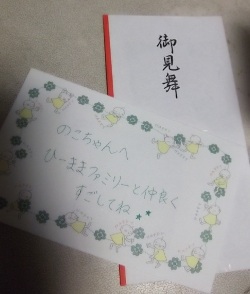 御見舞
のこちゃんへ
ひーままファミリーと仲良く
すごしてね